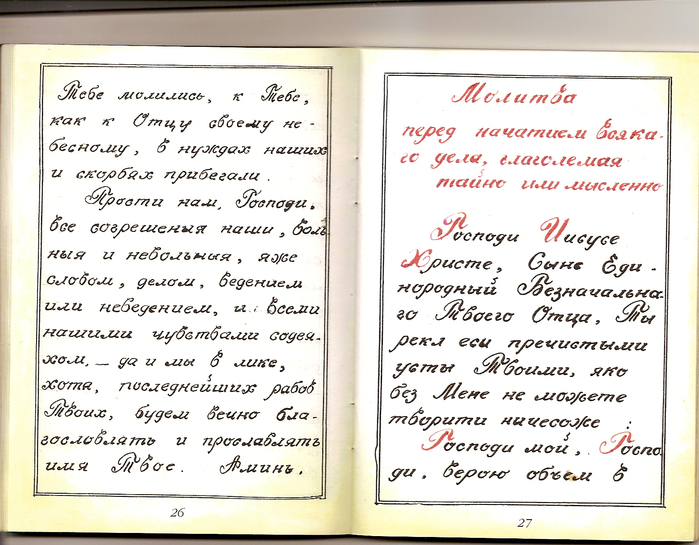 Тебе молились, к Тебе,
как к Отцу своему не-
бесному, в нуждах наших
и скорбях прибегали.
Прости нам, Господи,
все согрешения наши, воль
ныя и невольныя, яже
словом, делом, ведением
или неведением, и всеми
нашими чувствами содея-
хом, — да и мы в лике,
хотя, последнейших рабов
Твоих, будем вечно бла-
гословлять и прославлять
имя Твое. Аминь.
26
Молитва
перед начатием всяка-
го дела, глаголемая
тайно или мысленно
Господи Иисусе
Христе, Сыне Еди-
нородный Безначальна-
го Твоего Отца, Ты
рекл еси пречистыми
усты Твоими, яко
без Мене не можете
творити ничесоже :
Господи мой, Госпо
ди, верою объем в
27